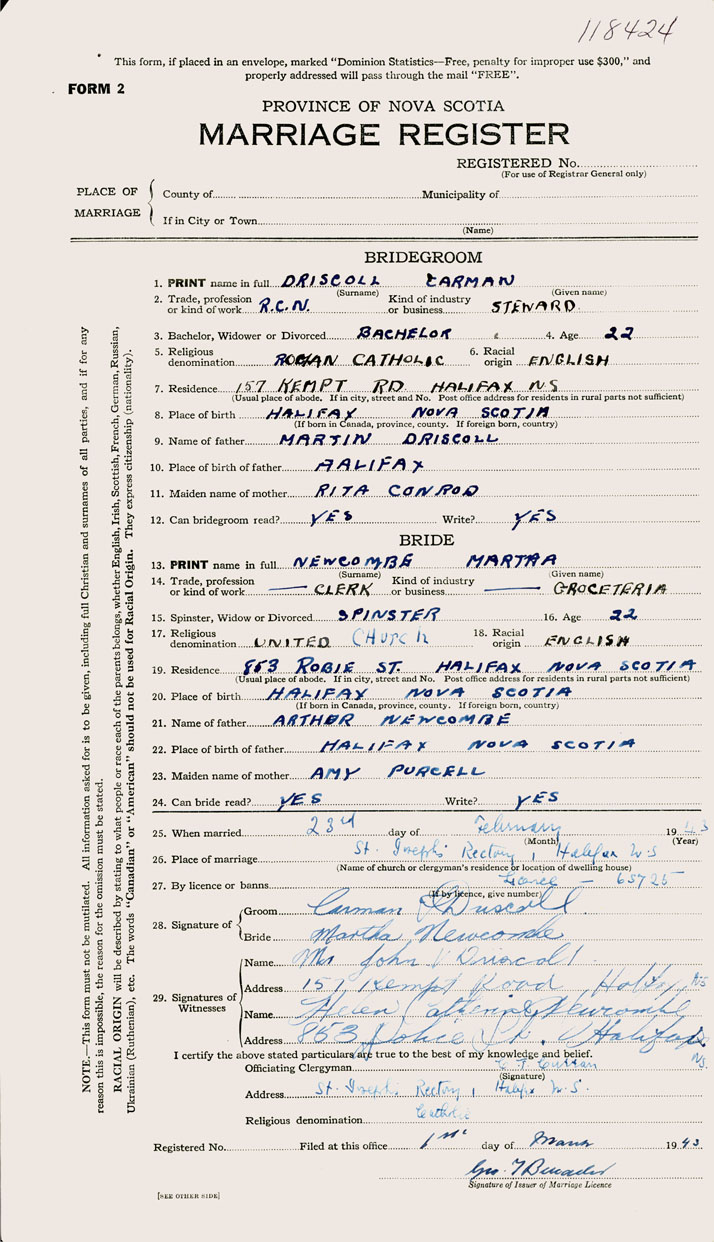 118424
This form, if placed in an envelope, marked "Dominion Statistics—Free, penalty for improper use $300," and
properly addressed will pass through the mail "FREE".
FORM 2
PROVINCE OF NOVA SCOTIA
MARRIAGE REGISTER
REGISTERED No.
(For use of Registrar General only)
PLACE OF MARRIAGE
County of Municipality of
If in City or Town
(Name)
BRIDEGROOM
1. PRINT name in full DRISCOLL CARMAN
(Surname) (Given name)
2. Trade, profession or kind of work R.C.N. Kind of industry or business STEWARD
3. Bachelor, Widower or Divorced BACHELOR 4. Age 22
5. Religious denomination ROMAN CATHOLIC 6. Racial origin ENGLISH
7. Residence 157 KEMPT RD HALIFAX NS
(Usual place of abode. If in city, street and No. Post office address for residents in rural parts not sufficient)
8. Place of birth HALIFAX NOVA SCOTIA
(If born in Canada, province, county. If foreign born, country)
9. Name of father MARTIN DRISCOLL
10. Place of birth of father HALIFAX
11. Maiden name of mother RITA CONROD
12. Can bridegroom read? YES Write? YES
BRIDE
13. PRINT name in full NEWCOMBE MARTHA
(Surname) (Given name)
14. Trade, profession or kind of work CLERK Kind of industry or business GROCETERIA
15. Spinster, Widow or Divorced SPINSTER 16. Age 22
17. Religious denomination UNITED CHURCH 18. Racial origin ENGLISH
19. Residence 853 ROBIE ST. HALIFAX NOVA SCOTIA
(Usual place of abode. If in city, street and No. Post office address for residents in rural parts not sufficient)
20. Place of birth HALIFAX NOVA SCOTIA
(If born in Canada, province, county. If foreign born, country)
21. Name of father ARTHUR NEWCOMBE
22. Place of birth of father HALIFAX NOVA SCOTIA
23. Maiden name of mother AMY PURCELL
24. Can bride read? YES Write? YES
25. When married 23rd day of February 1943
(Month) (Year)
26. Place of marriage St. Joseph's Rectory, Halifax N.S
(Name of church or clergyman's residence or location of dwelling house)
27. By licence or banns Licence - 65725
(If by licence, give number)
28. Signature of
Groom Carman Driscoll
Bride Martha Newcombe
29. Signatures of Witnesses
Name Mr John Driscoll
Address 157 Kempt Road NS
Name Helen Newcombe
Address 853 St. Halifax NS.
I certify the above stated particulars are true to the best of my knowledge and belief.
Officiating Clergyman
(Signature)
Address St. Joseph's Rectory, Halifax N.S.
Religious denomination Catholic
Registered No. Filed at this office 1st day of March 1943
Signature of Issuer of Marriage Licence
[SEE OTHER SIDE]
NOTE.—This form must not be mutilated. All information asked for is to be given, including full Christian and surnames of all parties, and if for any
reason this is impossible, the reason for the omission must be stated.
RACIAL ORIGIN will be described by stating to what people or race each of the parents belongs, whether English, Irish, Scottish, French, German, Russian,
Ukrainian (Ruthenian), etc. The words "Canadian" or "American" should not be used for Racial Origin. They express citizenship (nationality).